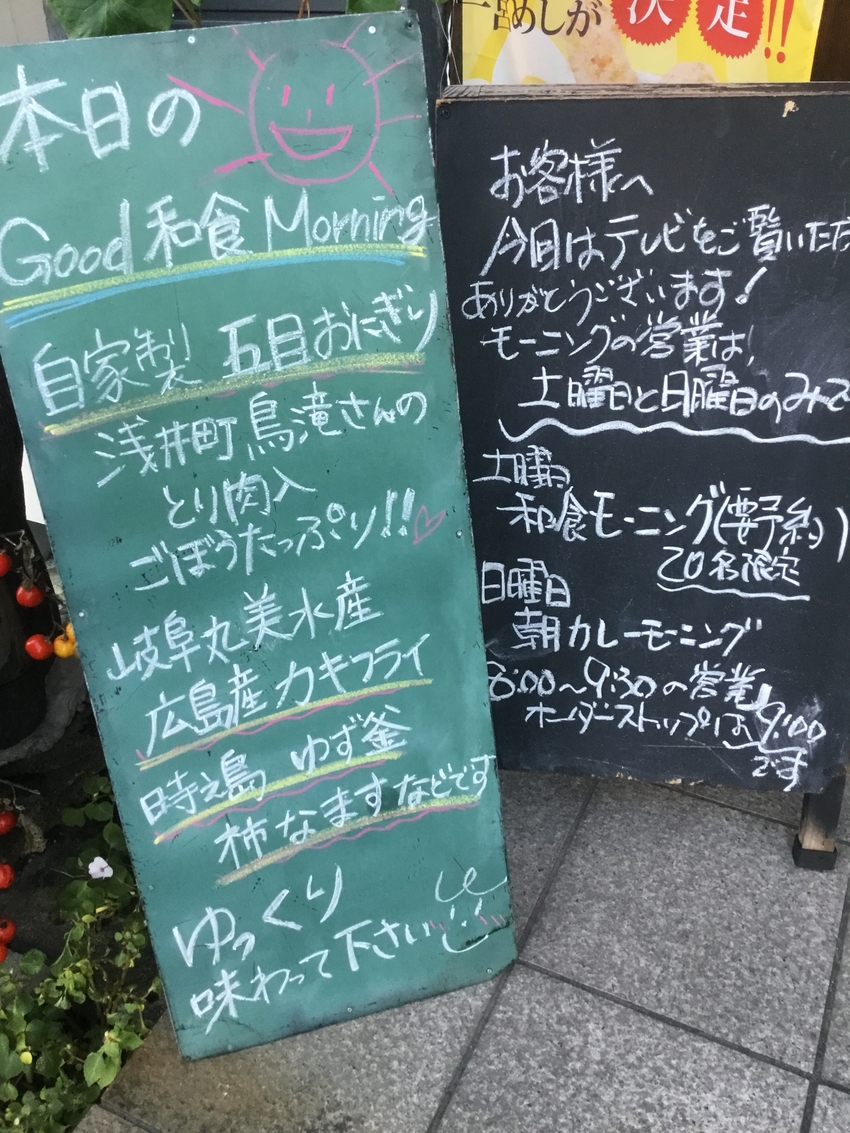 本日の
Good 和食 Morning
自家製 五目おにぎり
浅井町鳥滝さんの
とり肉入
ごぼうたっぷり!!
岐阜丸美水産
広島産カキフライ
時之島 ゆず釜
柿なますなどです
ゆっくり
味わって下さい
一宮めしが 決定!!
お客様へ
今日はテレビをご覧いただ
ありがとうございます!
モーニングの営業は、
土曜日と日曜日のみで
土曜日
和食モーニング(要予約)
20名限定
日曜日
朝カレーモーニング
8:00〜9:30の営業
オーダーストップは9:00
です